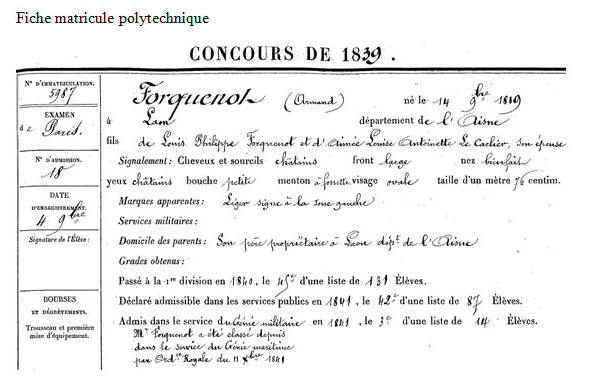 Fiche matricule polytechnique
CONCOURS DE 1839.
N° D'IMMATRICULATION.
5987
EXAMEN
de Paris.
N° D'ADMISSION.
18
DATE
D'ENREGISTREMENT.
4 9bre
Signature de l'Élève:
BOURSES
ET DÉGRÈVEMENTS.
Trousseau et première
mise d'équipement.
Forquenot (Armand) né le 14 9bre 1819
à Laon département de l'Aisne
fils de Louis Philippe Forquenot et d'Aimée Louise Antoinette Le Carlier, son épouse
Signalement: Cheveux et sourcils châtains front large nez bienfait
yeux châtains bouche petite menton à fossette visage ovale taille d'un mètre 76 centim.
Marques apparentes: Léger signe à la joue gauche
Services militaires:
Domicile des parents: Son père propriétaire à Laon dépt de l'Aisne
Grades obtenus:
Passé à la 1re division en 1840, le 45e d'une liste de 131 Élèves.
Déclaré admissible dans les services publics en 1841, le 42e d'une liste de 87 Élèves.
Admis dans le service du Génie militaire en 1841, le 3e d'une liste de 14 Élèves.
Mr Forquenot a été classé depuis
dans le service du Génie maritime
par Ordce Royale du 11 Xbre 1841